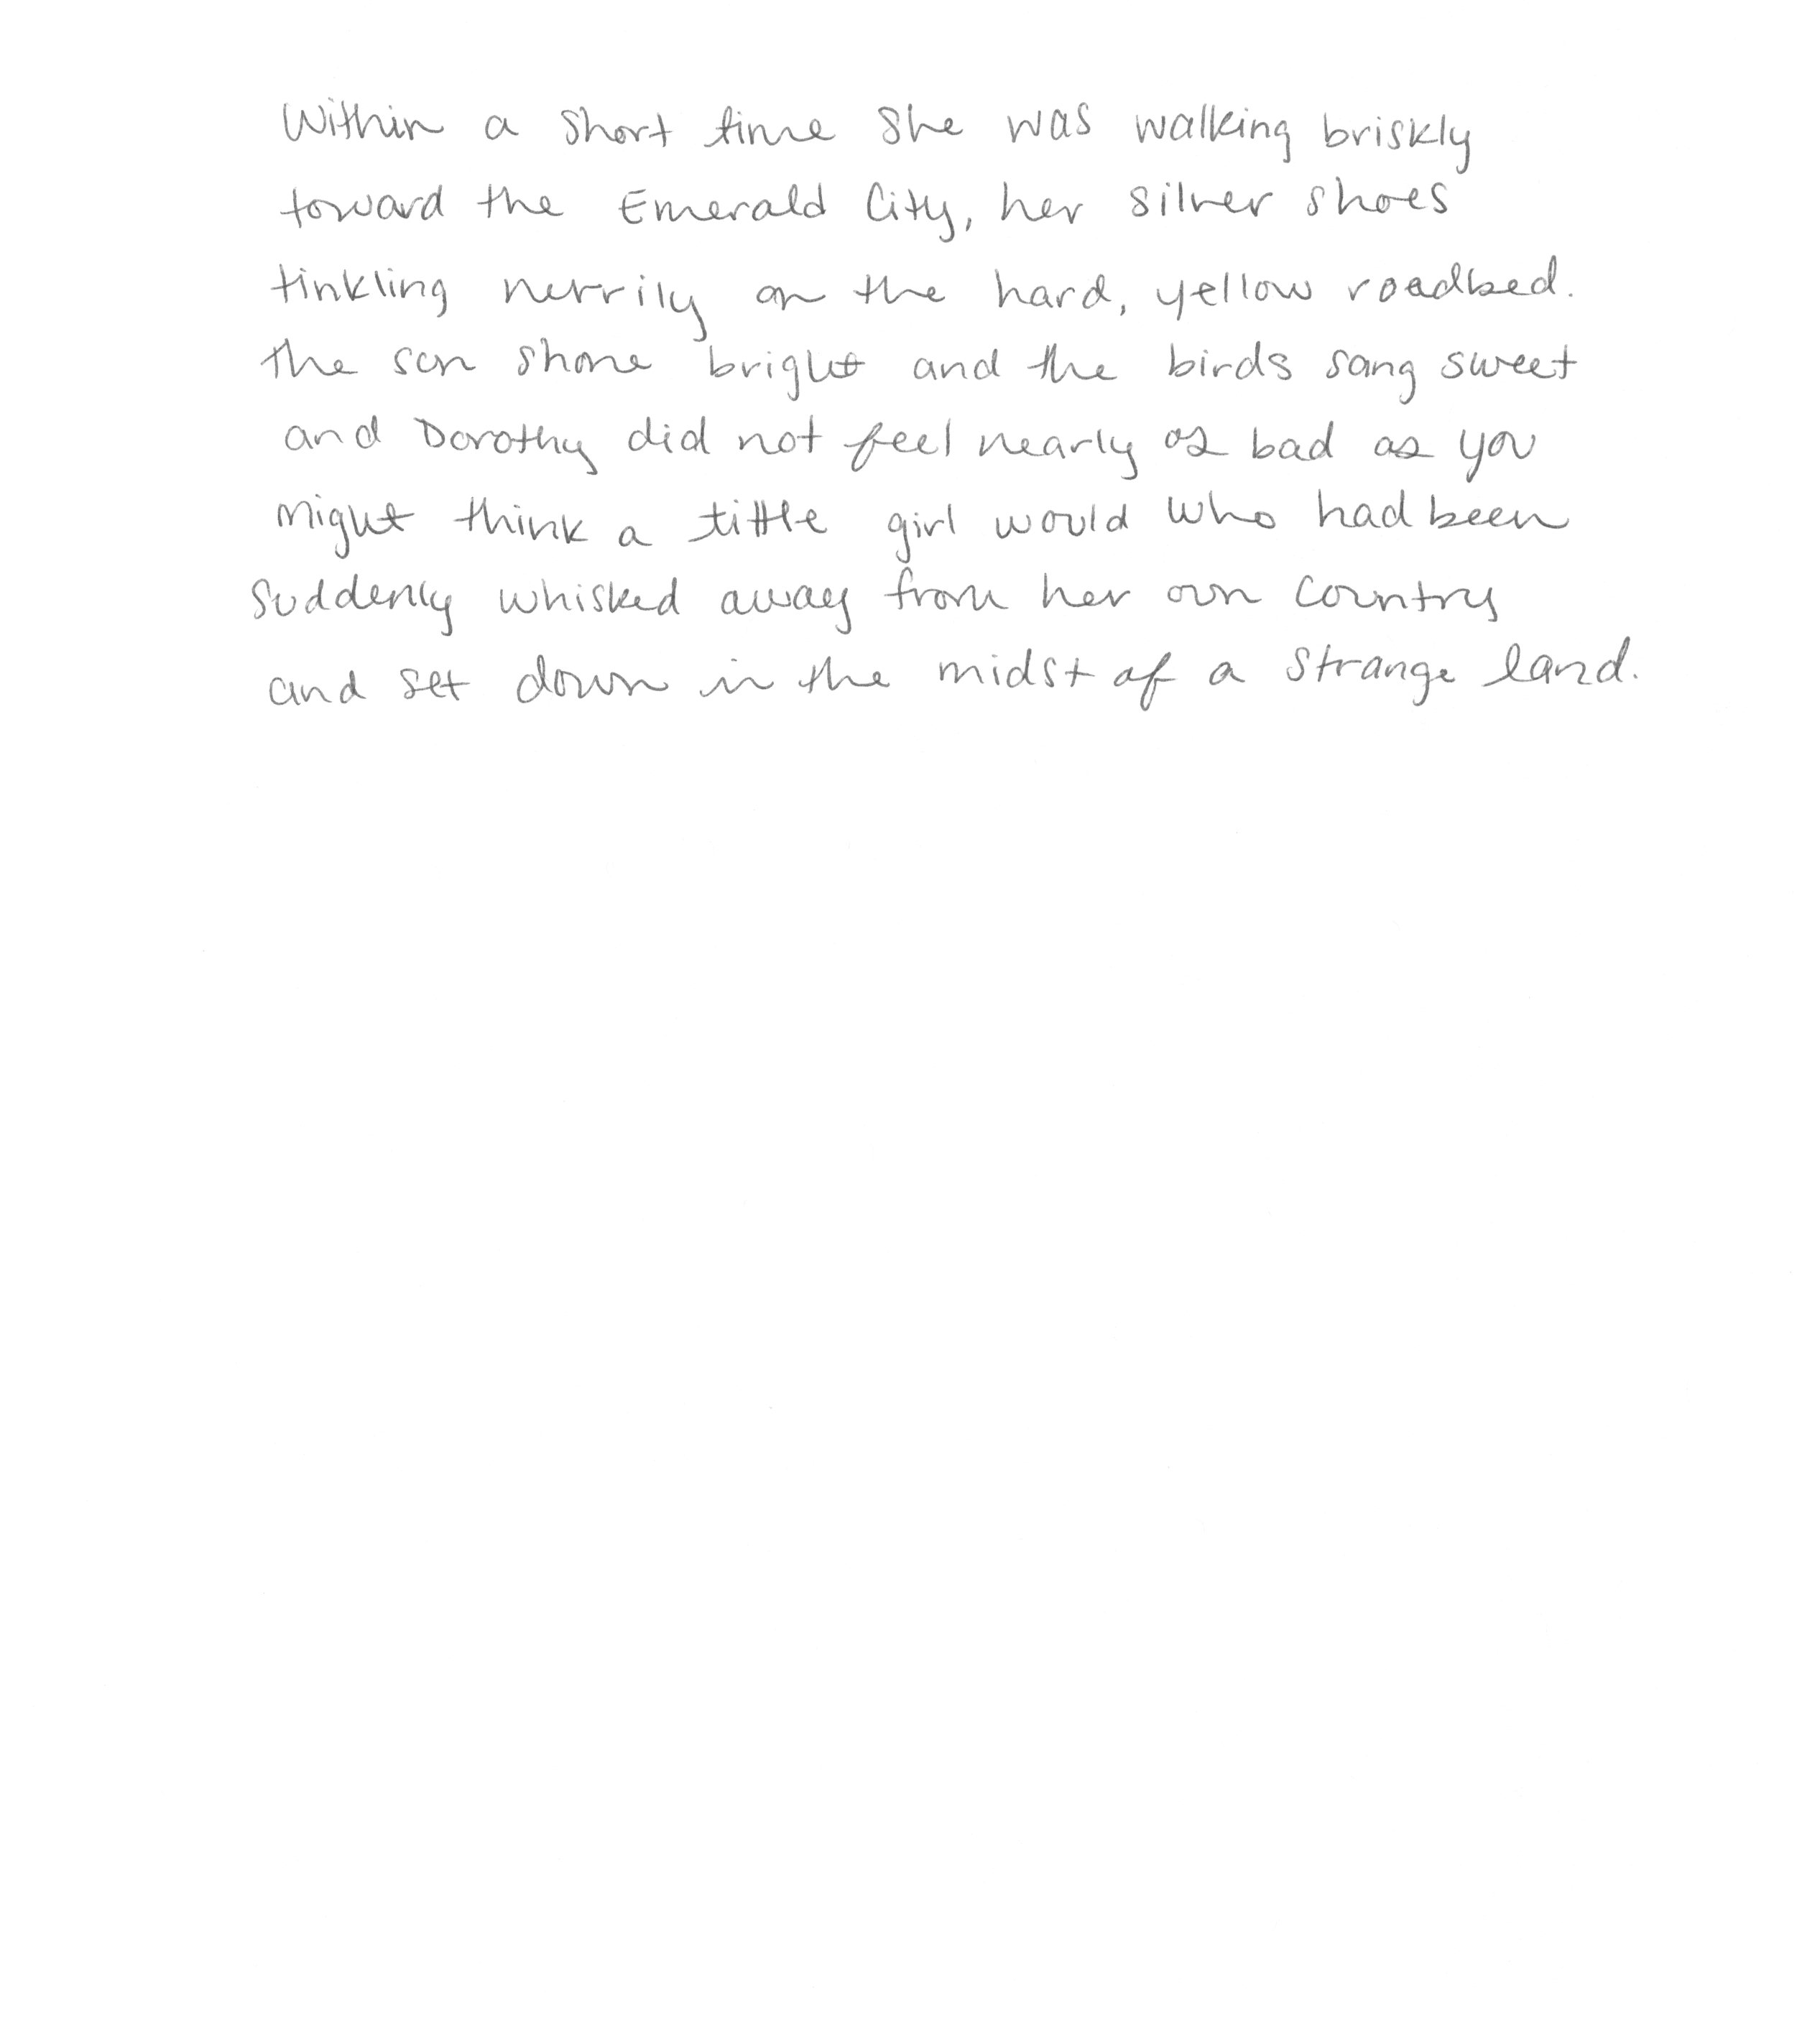 Within a short time she was walking briskly
toward the Emerald City, her silver shoes
tinkling merrily on the hard, yellow roadbed.
the sun shone bright and the birds sang sweet
and Dorothy did not feel nearly as bad as you
might think a little girl would who had been
suddenly whisked away from her own country
and set down in the midst of a strange land.